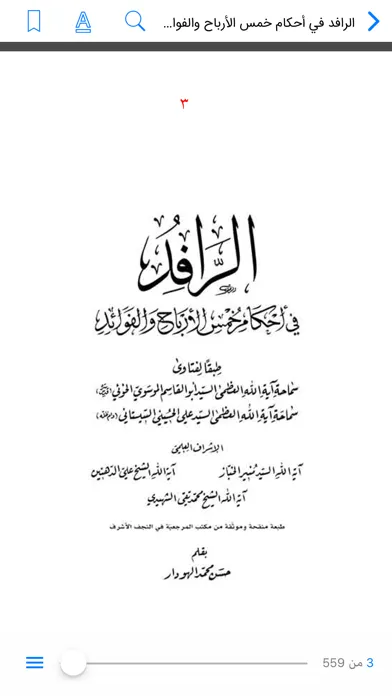 الرافد في أحكام خمس الأرباح والفوا...
٣
الرَّافِدُ
في أحكام خمس الأرباح والفوائد
طبقًا لفتاوى
سماحة آية الله العظمى السيد أبو القاسم الموسوي الخوئي (قدس سره)
سماحة آية الله العظمى السيد علي الحسيني السيستاني (دام ظله)
الإشراف العلمي
آية الله السيد منير الخباز آية الله الشيخ علي الدهنين
آية الله الشيخ محمد تقي الشهيدي
طبعة منقحة وموثقة من مكتب المرجعية في النجف الأشرف
بقلم
حسن محمد الهودار
3 من 559